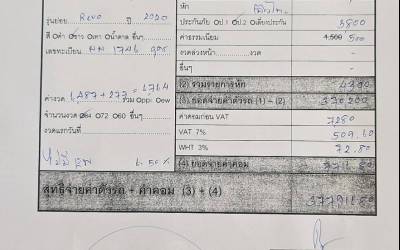 หัก
รุ่นย่อย Revo ปี 2020
ประกันภัย ป.1 ป.2 เดียงประกัน 3,800
สี ดำ ขาว เทา น้ำตาล อื่นๆ
ค่าธรรมเนียม 4,500 500
เลขทะเบียน
งวดล่วงหน้า งวด -
อื่นๆ
(2) รวมรายการหัก 4300
ค่างวด 1,487+277 = 1764 รวม ppi ew
(3) ยอดจ่ายค่าตัวรถ (1) - (2) 370200
จำนวนงวด 84 72 60 อื่นๆ
ค่าคอมก่อน VAT 7280
งวดแรกวันที่
VAT 7% 509.60
WHT 3% 72.80
6.50%
(4) ยอดจ่ายค่าคอม
สุทธิจ่ายค่าตัวรถ + ค่าคอม (3) + (4)